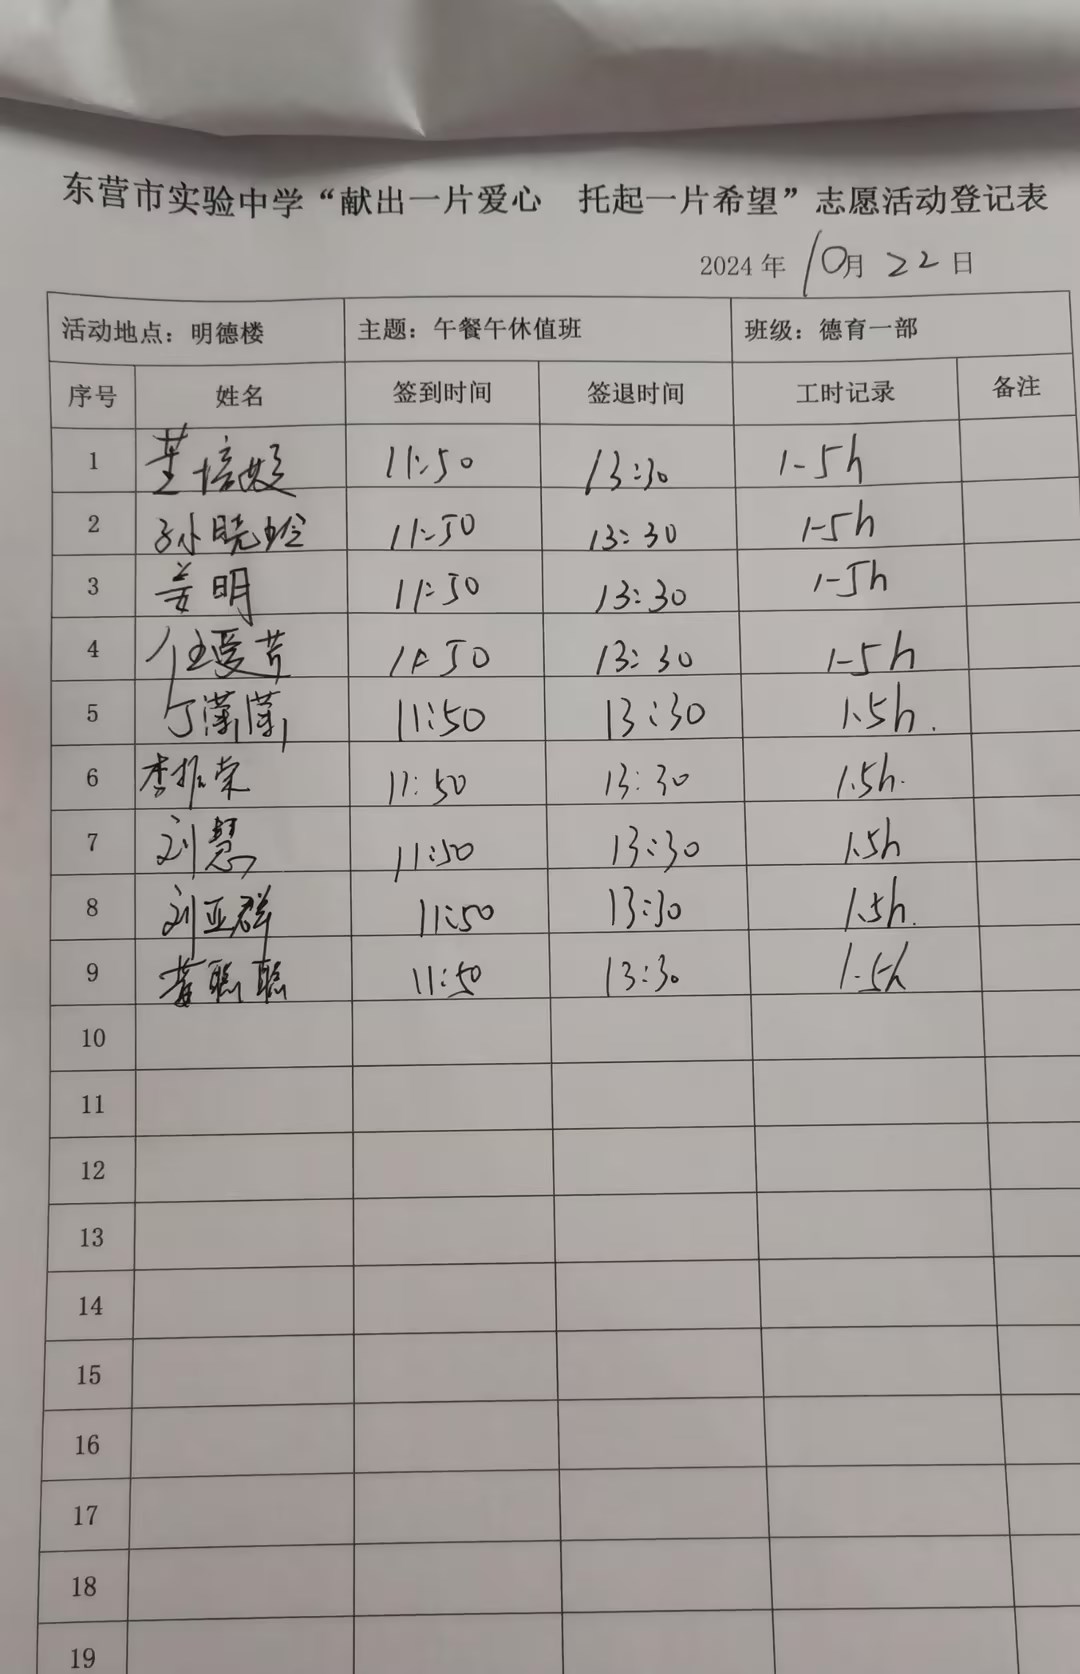 东营市实验中学“献出一片爱心 托起一片希望”志愿活动登记表
2024年10月22日
活动地点：明德楼 主题：午餐午休值班 班级：德育一部
序号 姓名 签到时间 签退时间 工时记录 备注
1 11:50 13:30 1.5h
2 孙晓 11:50 13:30 1.5h
3 姜明 11:50 13:30 1.5h
4 任爱芹 11:50 13:30 1.5h
5 丁潇潇 11:50 13:30 1.5h.
6 李振荣 11:50 13:30 1.5h.
7 刘慧 11:50 13:30 1.5h
8 刘亚群 11:50 13:30 1.5h.
9 黄聪聪 11:50 13:30 1.5h
10
11
12
13
14
15
16
17
18
19